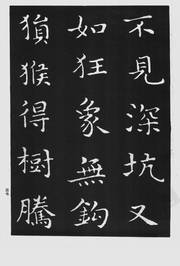 不見深坑又
如狂象無鈎
猨猴得樹騰